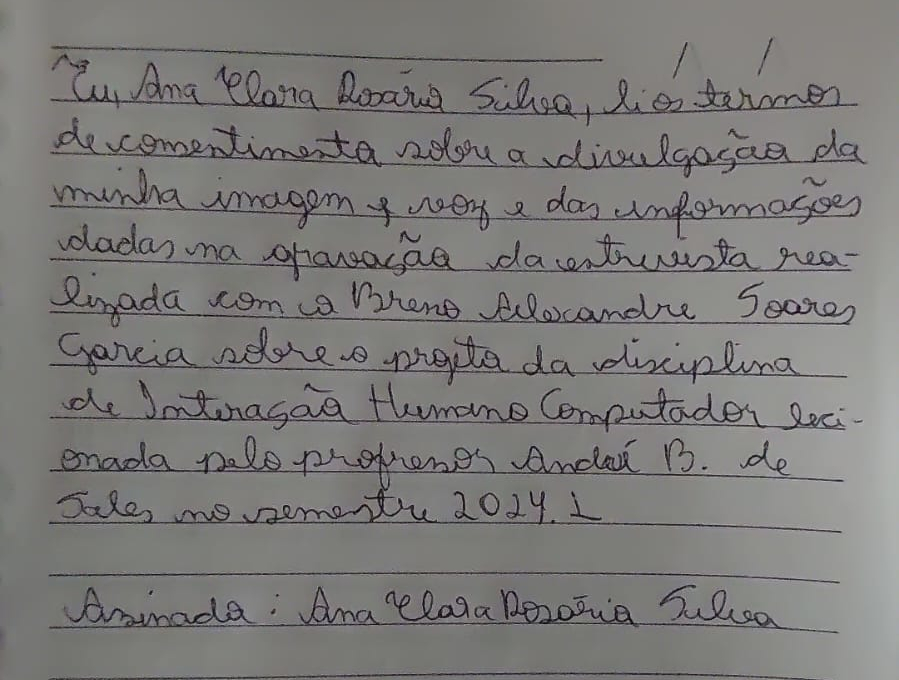 Eu, Ana Clara Rosário Silva, li os termos
de comentimento sobre a divulgação da
minha imagem e voz e das informações
dadas na gravação da entrevista rea-
lizada com o Breno Alexandre Soares
Garcia sobre o projeto da disciplina
de Interação Humano Computador leci-
onada pelo professor André B. de
Sales no semestre 2024.1
Assinado: Ana Clara Rosário Silva